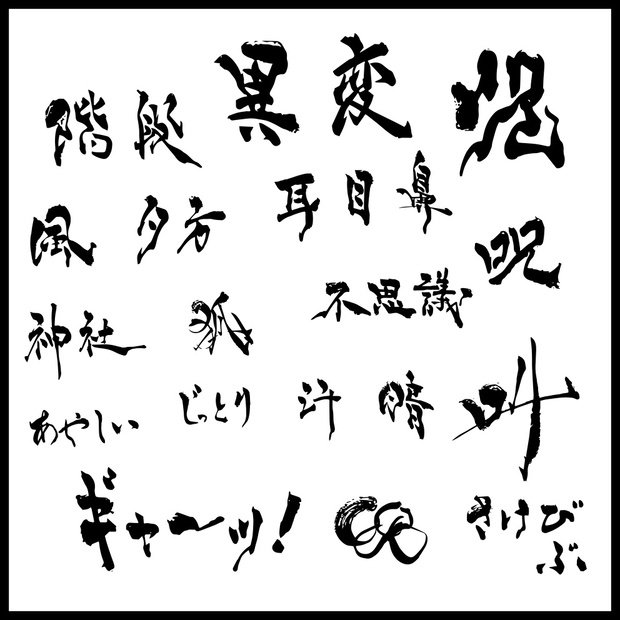 階段 異変 呪
風 夕方 耳目鼻 呪
神社 狐 不思議
あやしい じっとり 汗 晴 叫
ギャーッ! さけび
ぶ